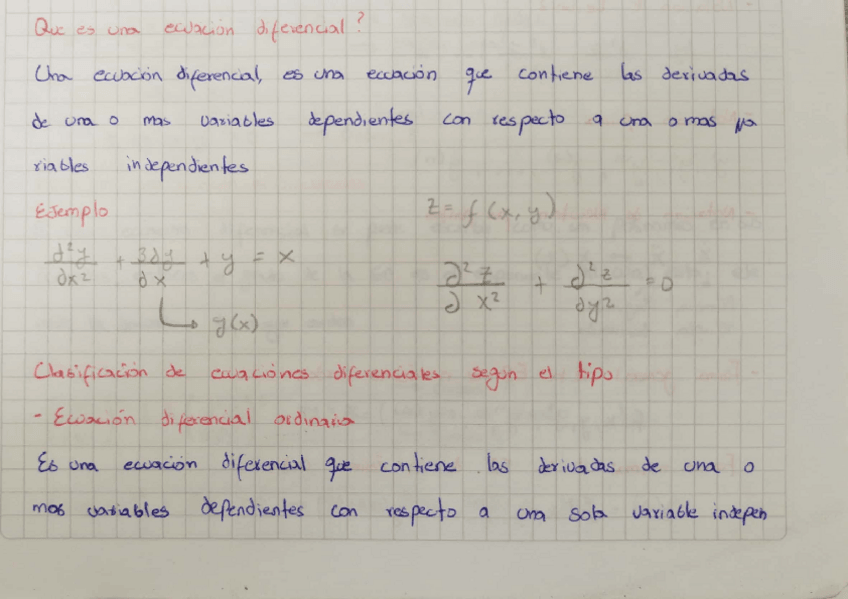 Que es una ecuación diferencial?
Una ecuación diferencial, es una ecuación que contiene las derivadas
de una o mas variables dependientes con respecto a una o mas va
riables independientes
Ejemplo
z = f (x, y)
∂²y/∂x² + 3∂y/∂x + y = x
∂²z/∂x² + ∂²z/∂y² = 0
y(x)
Clasificación de ecuaciónes diferenciales según el tipo
- Ecuación diferencial ordinaria
Es una ecuación diferencial que contiene las derivadas de una o
mas variables dependientes con respecto a una sola variable indepen